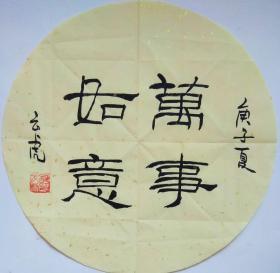 庚子夏
萬事
如意
云虎